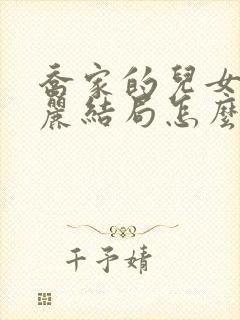 喬家的兒女
麗結局怎麼
千予婧